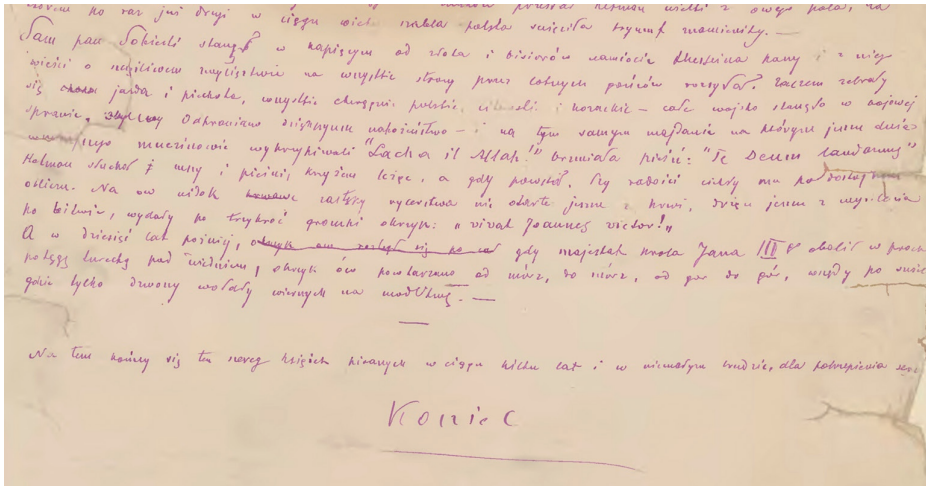 po raz już drugi w ciągu wieku szabla polska święciła tryumf znamienity. —
Sam pan Sobieski stanął w kapiącym od złota i bisiorów namiocie Husseina baszy i z niego
wieści o szczęśliwem zwycięstwie na wszystkie strony przez lotnych posłów rozsyłał. Zaczem zebrały
się jazda i piechota, wszystkie chorągwie polskie, litewskie i kozackie — całe wojsko stanęło w bojowej
sprawie. Odprawiano dziękczynne nabożeństwo — i na tym samym majdanie na którym jeszcze dnia
muezinowie wykrzykiwali "Lacha il Allah!" brzmiała pieśń: "Te Deum laudamus"
Hetman słuchał mszy i pieśni, krzyżem leżąc, a gdy powstał, łzy radości ciekły mu po dostojnem
obliczu. Na ów widok zastępy rycerstwa nie obtarte jeszcze z krwi, drżące jeszcze z wysilenia
po bitwie, wydały po trzykroć gromki okrzyk: „vivat Joannes victor!„
A w dziesięć lat później, gdy majestat króla Jana III obalił w proch
potęgę turecką pod Wiedniem, okrzyk ów powtarzano od mórz, do mórz, od gór do gór, wszędy po świecie
gdzie tylko dzwony wołały wiernych na modlitwę. —
Na tem kończy się ten szereg książek pisanych w ciągu kilku lat i w niemałym trudzie, dla pokrzepienia serc
Koniec